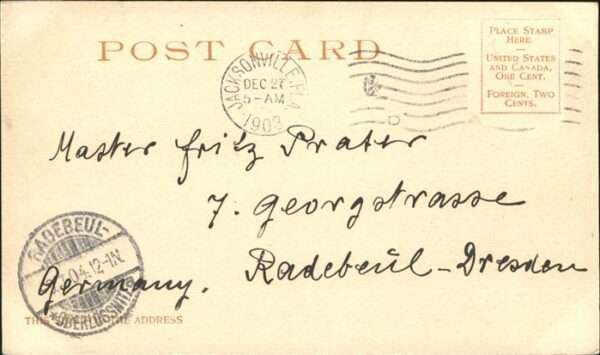 POST CARD
PLACE STAMP
HERE.
UNITED STATES
AND CANADA,
ONE CENT.
FOREIGN, TWO
CENTS.
JACKSONVILLE, FLA.
DEC 27
5-AM
1903
D
Master Fritz Prater
7. Georgstrasse
Radebeul-Dresden
Germany.
RADEBEUL-
04.12-1N.
OBERLÖSSNITZ
THIS ADDRESS